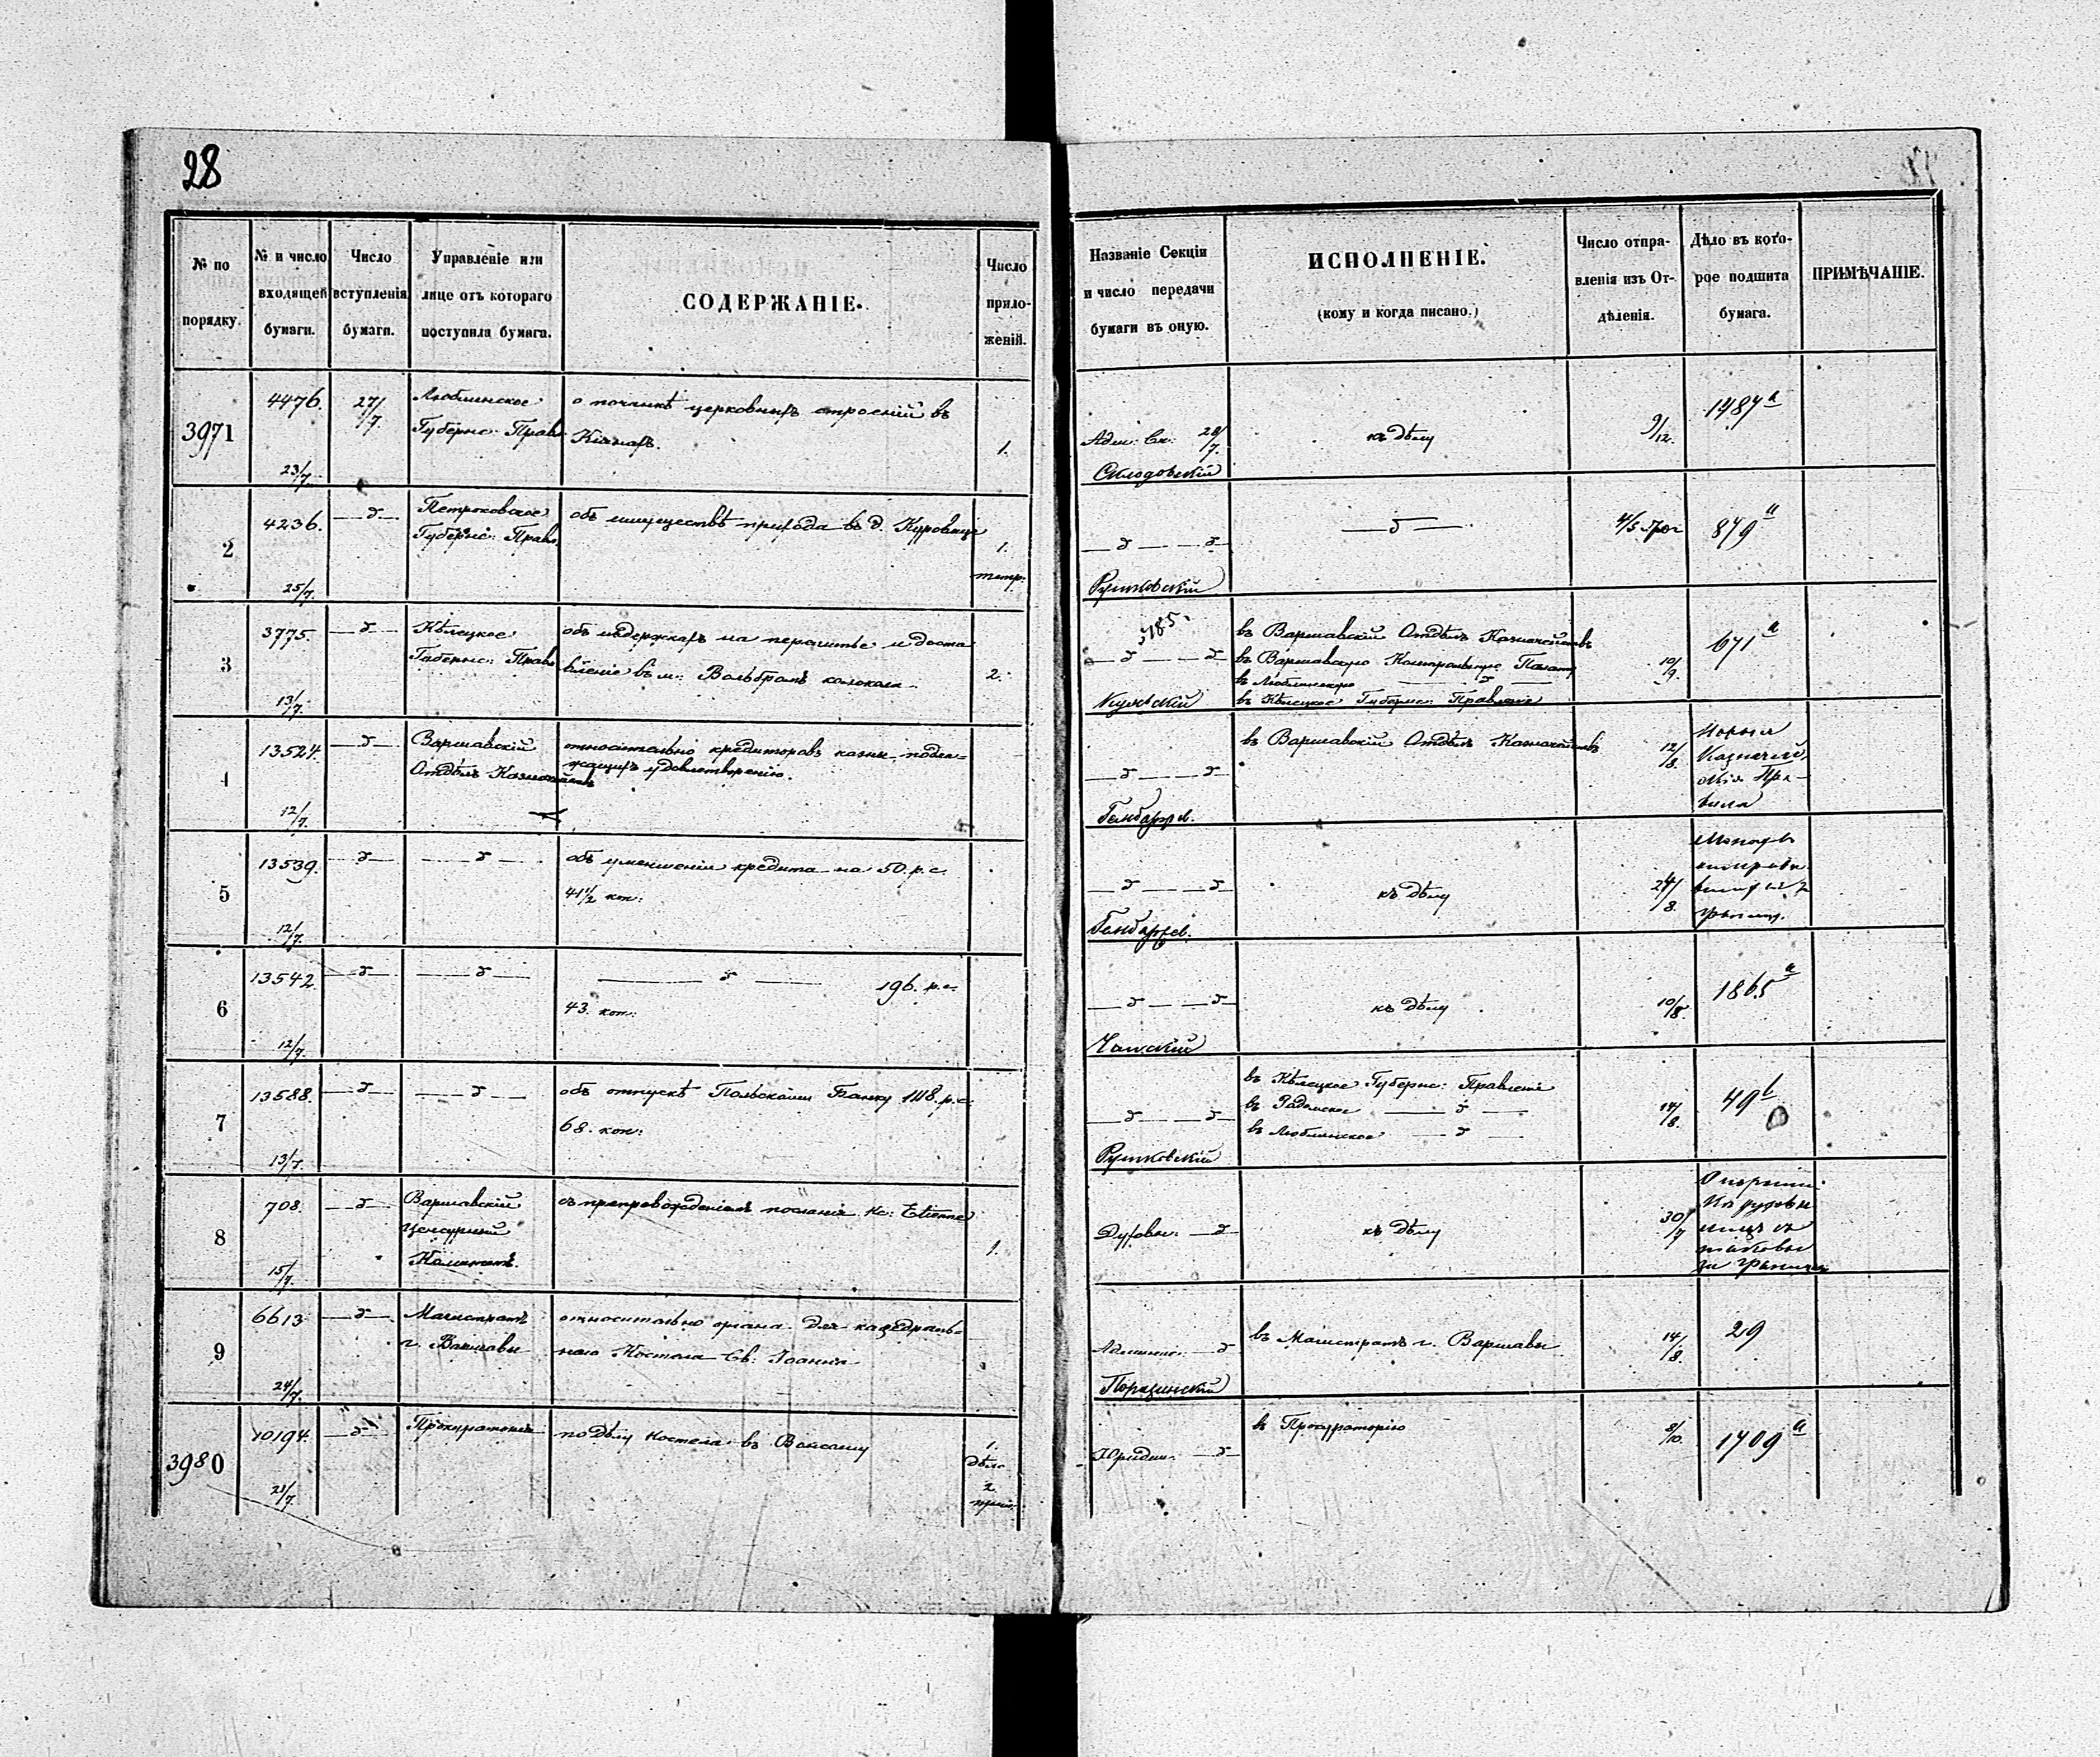 28
№ по порядку.
№ и число входящей бумаги.
Число вступленія бумаги.
Управленіе или лице отъ котораго поступила бумага.
СОДЕРЖАНІЕ.
Число приложеній.
Названіе Секціи и число передачи бумаги въ оную.
ИСПОЛНЕНІЕ.
(кому и когда писано.)
Число отправленія изъ Отдѣленія.
Дѣло въ которое подшита бумага.
ПРИМѢЧАНІЕ.
3971
4476.
23/7.
27/7.
Люблинское
Губернс: Правл:
о починкѣ церковныхъ строеній въ
1.
Адм: Ск: 28/7.
къ дѣлу
9/12.
1987 a
2
4236.
25/7.
— д —
Петроковское
Губернс: Правл:
объ имуществѣ прихода въ д.
1.
тетр.
— д — — д —
Рутковскій
— д —
879 a
3
3775.
13/7.
— д —
Кѣлецкое
Губернс: Правл:
объ издержкахъ на перелитье и доста
вленіе въ м: Вольбромъ колокола
2.
3185.
— д — — д —
въ Варшавскій Отдѣлъ Казначействъ
въ Варшавскую Контрольную Палату
въ Люблинскую — д —
въ Кѣлецкое Губернс: Правленіе
10/9.
671 a
4
13524.
12/7.
— д —
Варшавскій
Отдѣлъ Казначействъ
относительно кредиторовъ казны, подле-
жащихъ удовлетворенію.
— д — — д —
въ Варшавскій Отдѣлъ Казначействъ
12/8.
5
13539.
12/7.
— д —
— д —
объ уменьшеніи кредита на 50. р. с.
41 1/2 коп:
— д — — д —
къ дѣлу
24/8.
6
13542.
12/7.
— д —
— д —
— д — 196. р. с.
43. коп:
— д — — д —
къ дѣлу
10/8.
1865 a
7
13588.
13/7.
— д —
— д —
объ отпускѣ Польскому Банку 1118. р. с.
68. коп:
— д — — д —
Рутковскій
въ Кѣлецкое Губернс: Правленіе
въ Радомское — д —
въ Люблинское — д —
14/8.
49 b
8
708.
15/7.
— д —
Варшавскій
Цензурный
Комитетъ.
съ препровожденіемъ посланія Кс: Etienne
1.
Духовн: — д —
къ дѣлу
30/7
за границу
9
6613
24/7.
— д —
Магистратъ
г. Варшавы
относительно органа для кафедраль-
наго Костела Св: Іоанна
— д
въ Магистратъ г. Варшавы
14/8.
29
3980
10194.
21/7.
— д —
Прокураторія
по дѣлу костела въ
1.
дѣло
2.
Юридич: — д —
въ Прокураторію
8/10.
1709 a